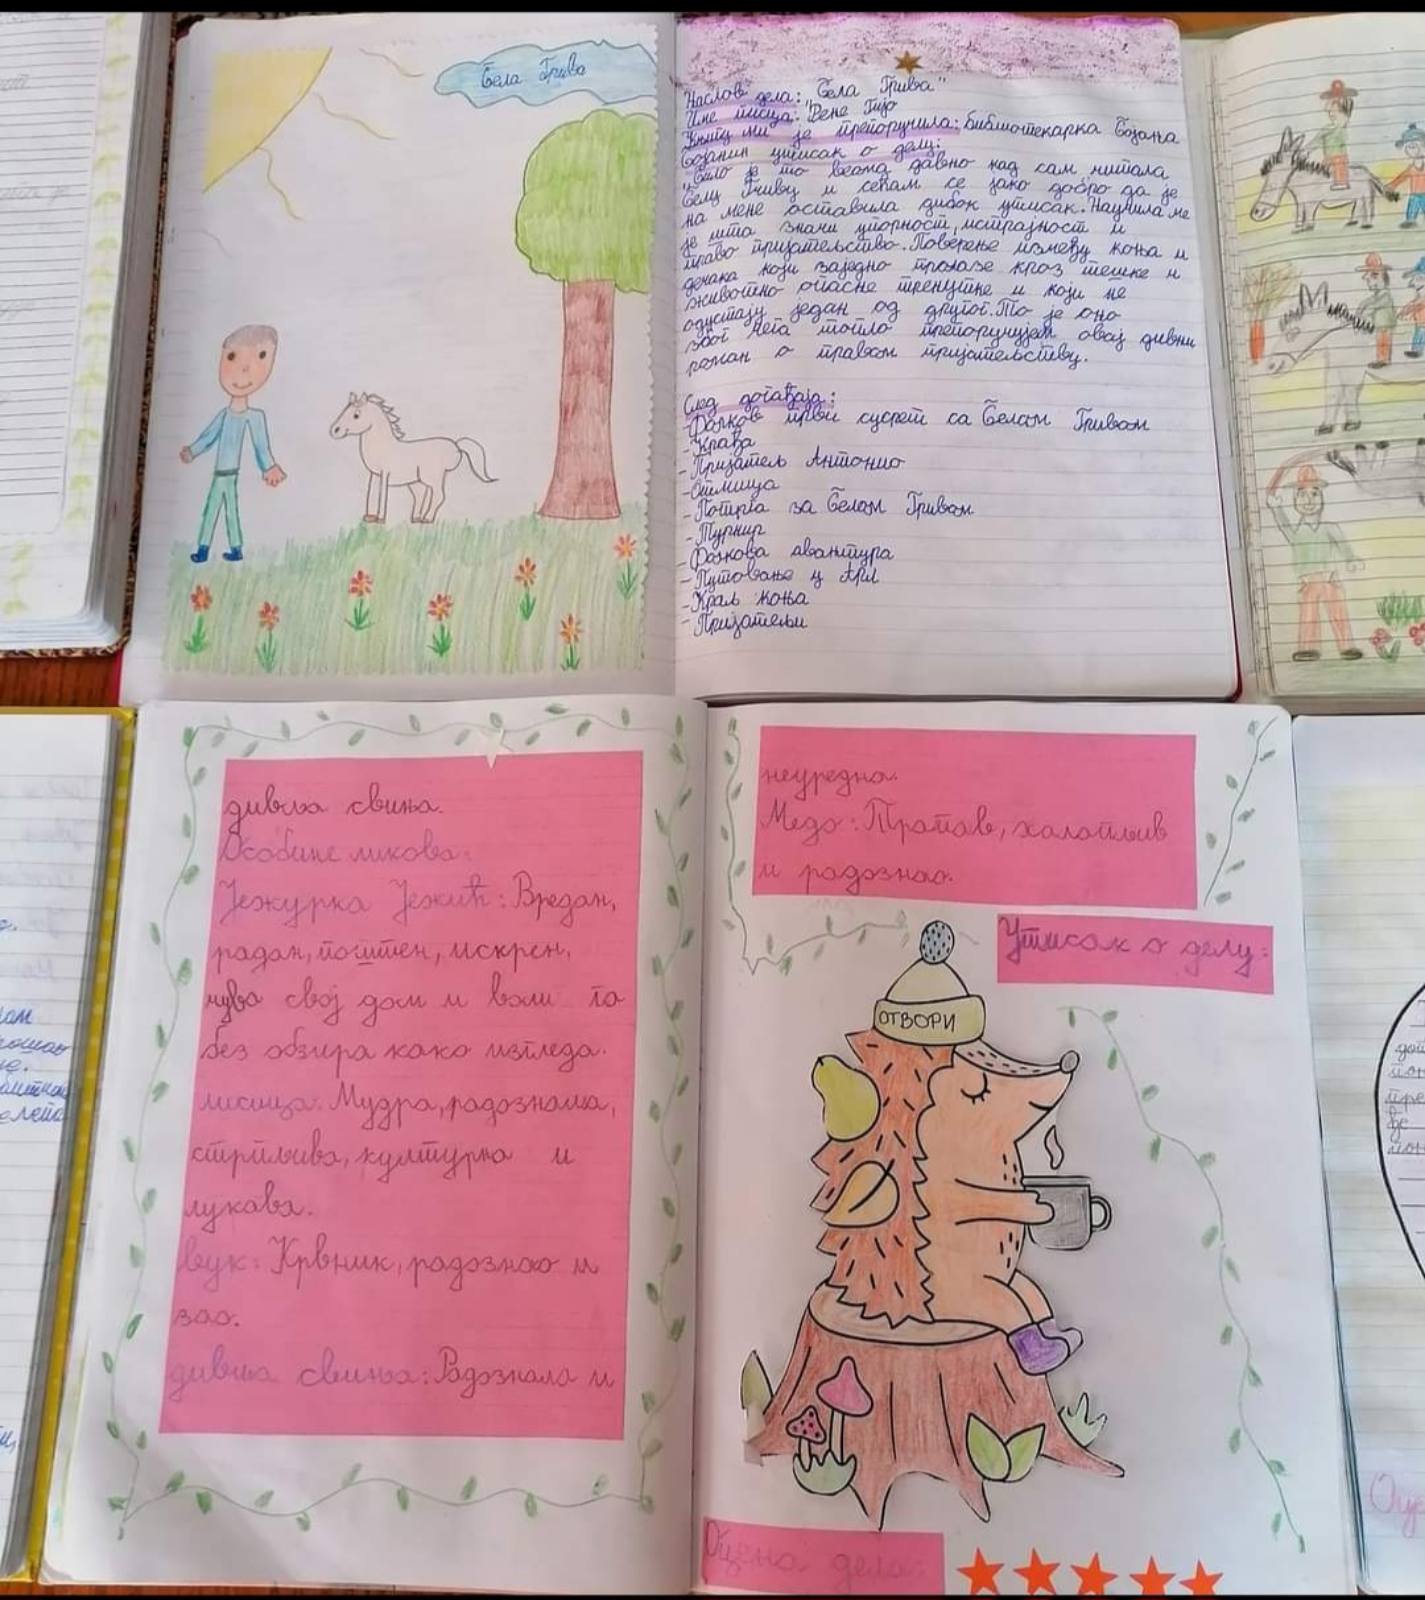 Бела Грива
Наслов дела: "Бела Грива"
Име писца: Рене Гијо
Књигу ми је препоручила: библиотекарка Бојана
Бојанин утисак о делу:
"Било је то веома давно кад сам читала
Белу Гриву и сећам се јако добро да је
на мене оставила дубок утисак. Научила ме
је шта значи упорност, истрајност и
право пријатељство. Поверење између коња и
дечака који заједно пролазе кроз тешке и
животно опасне тренутке и који не
одустају један од другог. То је оно
због чега топло препоручујем овај дивни
роман о правом пријатељству.
След догађаја:
-Фолков први сусрет са Белом Гривом
-Крађа
-Пријатељ Антонио
-Отмица
-Потрга за Белом Гривом
-Турнир
-Фолкова авантура
-Путовање у Арл
-Краљ коња
-Пријатељи
дивља свиња.
Особине ликова:
Јежурка Јежић: Вредан,
радан, поштен, искрен,
чува свој дом и воли га
без обзира како изгледа.
лисица: Мудра, радознала,
стрпљива, културна и
лукава.
вук: Крвник, радознао и
зао.
дивља свиња: Радознала и
неуредна.
Медо: Трапав, халапљив
и радознао.
Утисак о делу:
ОТВОРИ
Оцена дела: